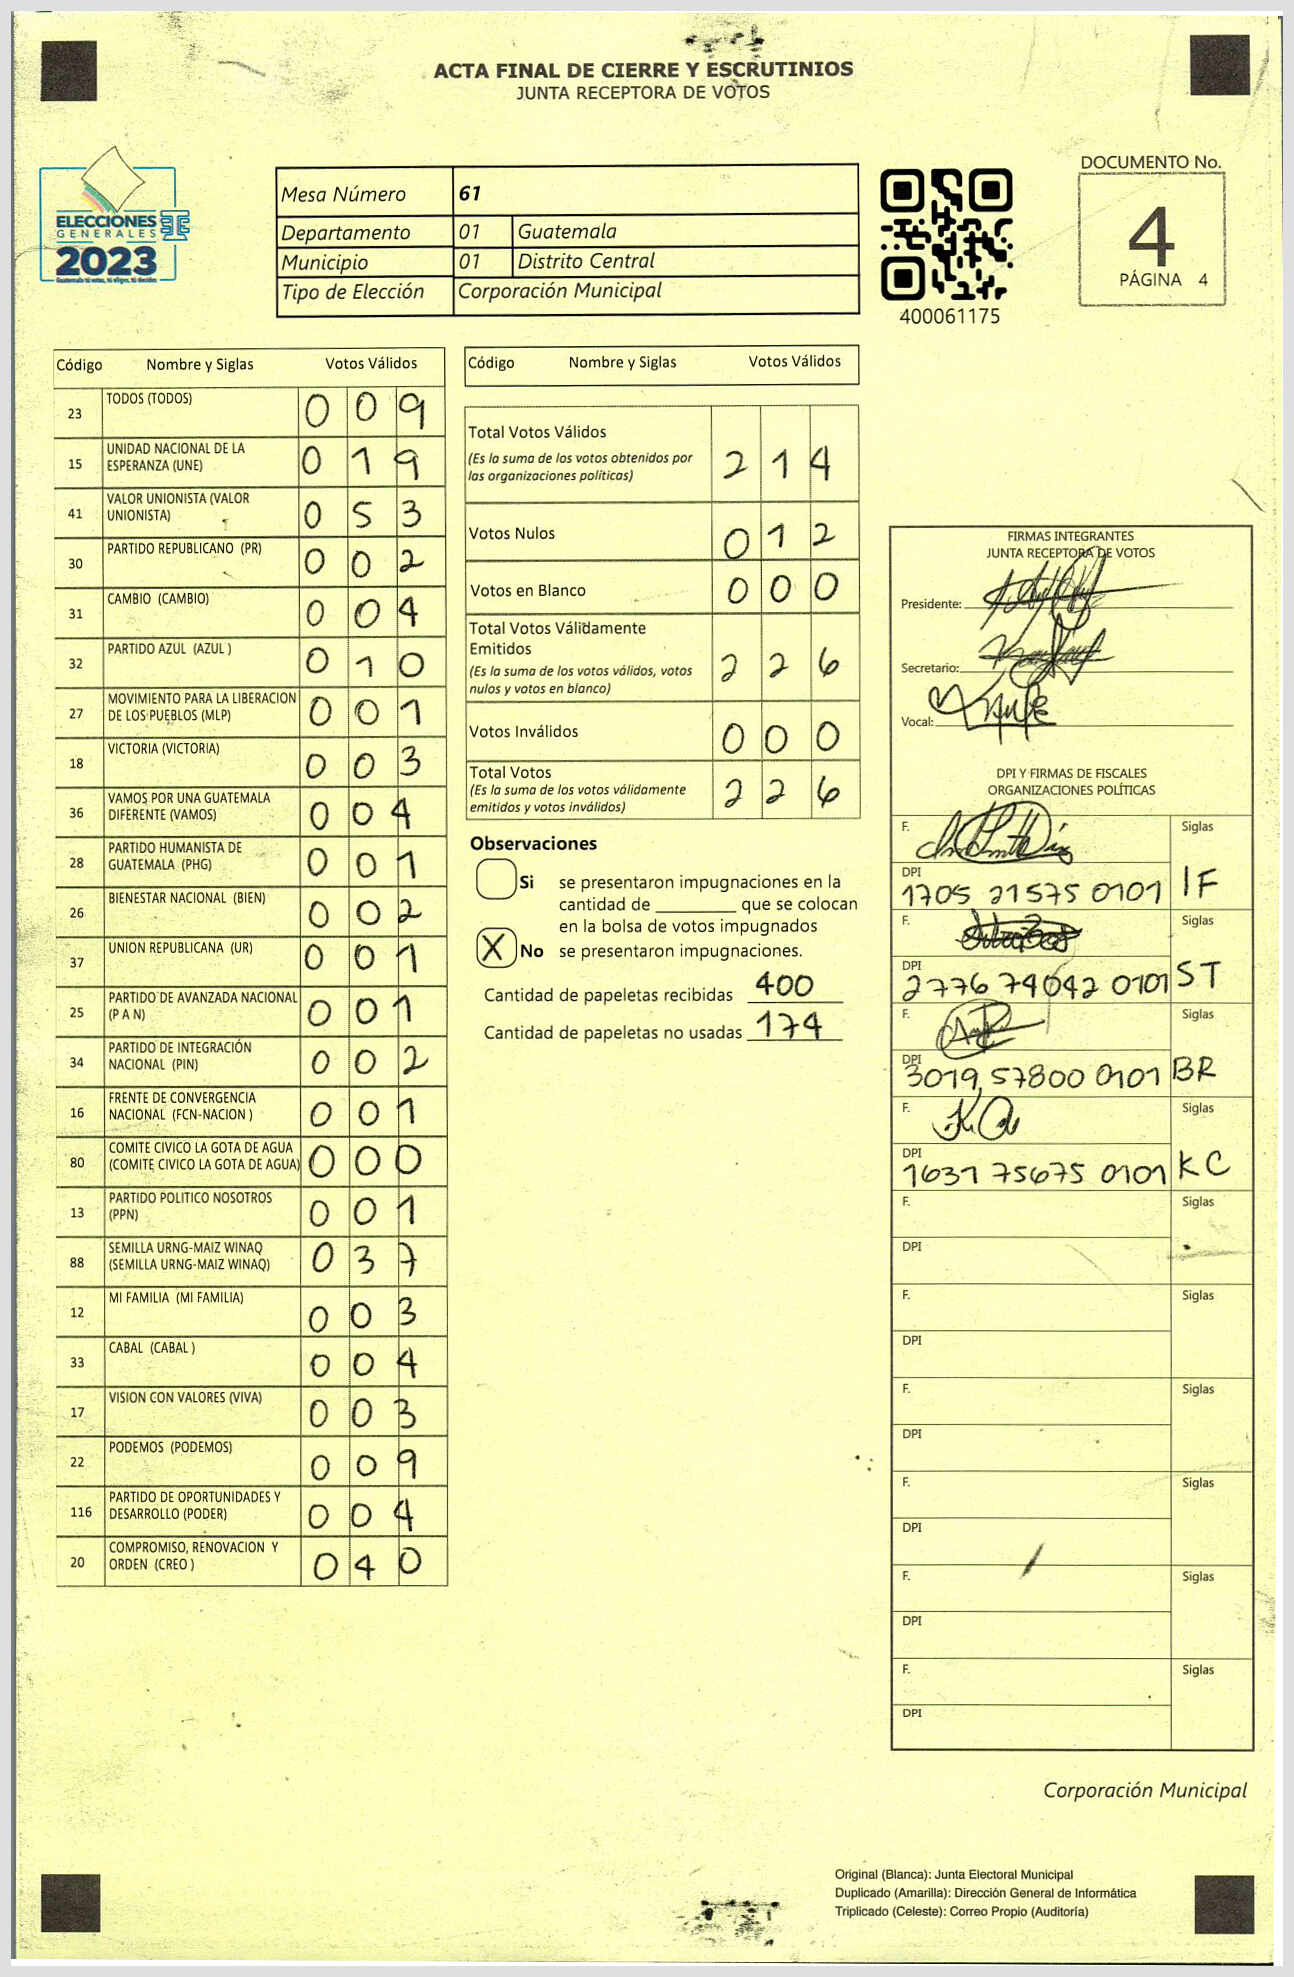 ACTA FINAL DE CIERRE Y ESCRUTINIOS
JUNTA RECEPTORA DE VOTOS
ELECCIONES
GENERALES
2023
Mesa Número 61
Departamento 01 Guatemala
Municipio 01 Distrito Central
Tipo de Elección Corporación Municipal
400061175
DOCUMENTO No.
4
PÁGINA 4
Código Nombre y Siglas Votos Válidos
23 TODOS (TODOS) 0 0 9
15 UNIDAD NACIONAL DE LA
ESPERANZA (UNE) 0 1 9
41 VALOR UNIONISTA (VALOR
UNIONISTA) 0 5 3
30 PARTIDO REPUBLICANO (PR) 0 0 2
31 CAMBIO (CAMBIO) 0 0 4
32 PARTIDO AZUL (AZUL ) 0 1 0
27 MOVIMIENTO PARA LA LIBERACION
DE LOS PUEBLOS (MLP) 0 0 1
18 VICTORIA (VICTORIA) 0 0 3
36 VAMOS POR UNA GUATEMALA
DIFERENTE (VAMOS) 0 0 4
28 PARTIDO HUMANISTA DE
GUATEMALA (PHG) 0 0 1
26 BIENESTAR NACIONAL (BIEN) 0 0 2
37 UNION REPUBLICANA (UR) 0 0 1
25 PARTIDO DE AVANZADA NACIONAL
(P A N) 0 0 1
34 PARTIDO DE INTEGRACIÓN
NACIONAL (PIN) 0 0 2
16 FRENTE DE CONVERGENCIA
NACIONAL (FCN-NACION ) 0 0 1
80 COMITE CIVICO LA GOTA DE AGUA
(COMITE CIVICO LA GOTA DE AGUA) 0 0 0
13 PARTIDO POLITICO NOSOTROS
(PPN) 0 0 1
88 SEMILLA URNG-MAIZ WINAQ
(SEMILLA URNG-MAIZ WINAQ) 0 3 7
12 MI FAMILIA (MI FAMILIA) 0 0 3
33 CABAL (CABAL ) 0 0 4
17 VISION CON VALORES (VIVA) 0 0 3
22 PODEMOS (PODEMOS) 0 0 9
116 PARTIDO DE OPORTUNIDADES Y
DESARROLLO (PODER) 0 0 4
20 COMPROMISO, RENOVACION Y
ORDEN (CREO ) 0 4 0
Código Nombre y Siglas Votos Válidos
Total Votos Válidos
(Es la suma de los votos obtenidos por
las organizaciones políticas) 2 1 4
Votos Nulos 0 1 2
Votos en Blanco 0 0 0
Total Votos Válidamente
Emitidos
(Es la suma de los votos válidos, votos
nulos y votos en blanco) 2 2 6
Votos Inválidos 0 0 0
Total Votos
(Es la suma de los votos válidamente
emitidos y votos inválidos) 2 2 6
Observaciones
Si se presentaron impugnaciones en la
cantidad de ________ que se colocan
en la bolsa de votos impugnados
X No se presentaron impugnaciones.
Cantidad de papeletas recibidas 400
Cantidad de papeletas no usadas 174
FIRMAS INTEGRANTES
JUNTA RECEPTORA DE VOTOS
Presidente:
Secretario:
Vocal:
DPI Y FIRMAS DE FISCALES
ORGANIZACIONES POLÍTICAS
F. Siglas
DPI
1705 21575 0101 IF
F. Siglas
DPI
2776 74042 0101 ST
F. Siglas
DPI
3019 57800 0101 BR
F. Siglas
DPI
1631 75675 0101 KC
F. Siglas
DPI
F. Siglas
DPI
F. Siglas
DPI
F. Siglas
DPI
F. Siglas
DPI
F. Siglas
DPI
Corporación Municipal
Original (Blanca): Junta Electoral Municipal
Duplicado (Amarilla): Dirección General de Informática
Triplicado (Celeste): Correo Propio (Auditoría)